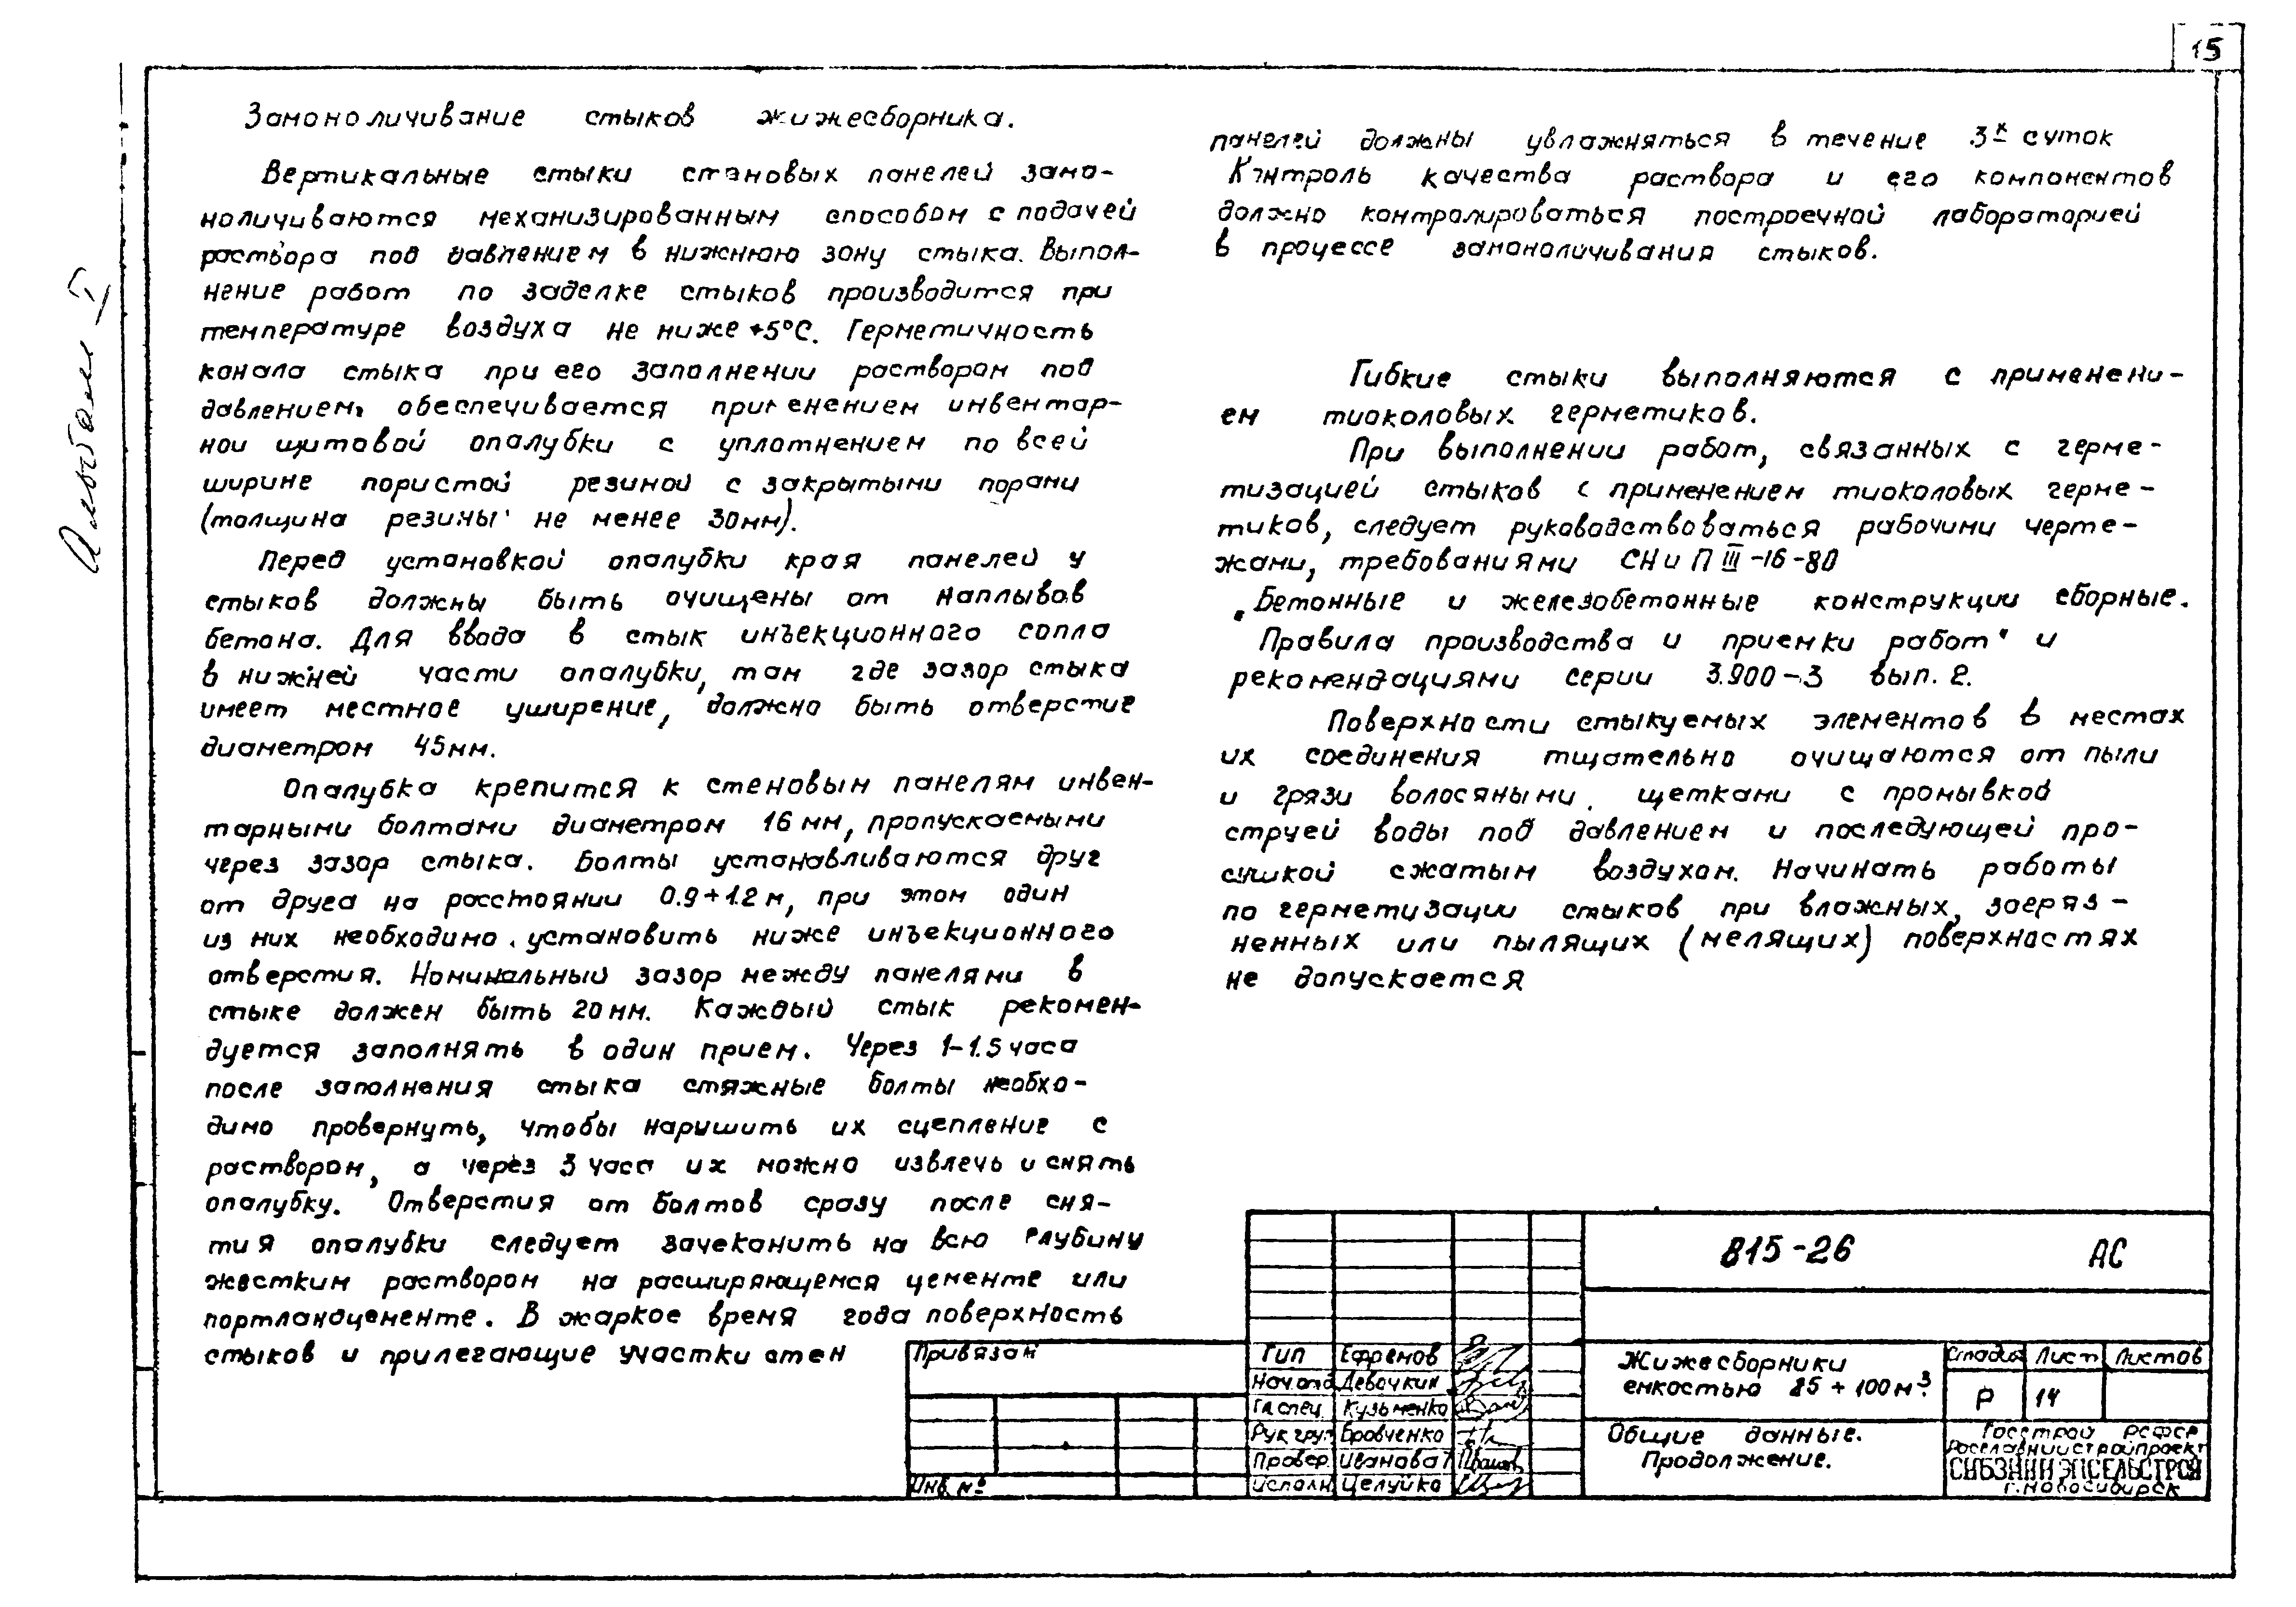 15
Альбом I
Замоноличивание стыков жижесборника.
Вертикальные стыки стеновых панелей замо-
ноличиваются механизированным способом с подачей
раствора под давлением в нижнюю зону стыка. Выпол-
нение работ по заделке стыков производится при
температуре воздуха не ниже +5°С. Герметичность
канала стыка при его заполнении раствором под
давлением обеспечивается применением инвентар-
ной щитовой опалубки с уплотнением по всей
ширине пористой резиной с закрытыми порами
(толщина резины не менее 30мм).
Перед установкой опалубки края панелей у
стыков должны быть очищены от наплывов
бетона. Для ввода в стык инъекционного сопла
в нижней части опалубки, там где зазор стыка
имеет местное уширение, должно быть отверстие
диаметром 45мм.
Опалубка крепится к стеновым панелям инвен-
тарными болтами диаметром 16 мм, пропускаемыми
через зазор стыка. Болты устанавливаются друг
от друга на расстоянии 0.9÷1.2 м, при этом один
из них необходимо установить ниже инъекционного
отверстия. Номинальный зазор между панелями в
стыке должен быть 20 мм. Каждый стык рекомен-
дуется заполнять в один прием. Через 1-1.5 часа
после заполнения стыка стяжные болты необхо-
димо провернуть, чтобы нарушить их сцепление с
раствором, а через 3 часа их можно извлечь и снять
опалубку. Отверстия от болтов сразу после сня-
тия опалубки следует зачеканить на всю глубину
жестким раствором на расширяющемся цементе или
портландцементе. В жаркое время года поверхность
стыков и прилегающие участки стен
панелей должны увлажняться в течение 3х суток
Контроль качества раствора и его компонентов
должно контролироваться построечной лабораторией
в процессе замоноличивания стыков.
Гибкие стыки выполняются с применени-
ем тиоколовых герметиков.
При выполнении работ, связанных с герме-
тизацией стыков с применением тиоколовых герме-
тиков, следует руководствоваться рабочими черте-
жами, требованиями СНиП III-16-80
"Бетонные и железобетонные конструкции сборные.
Правила производства и приемки работ" и
рекомендациями серии 3.900-3 вып. 2.
Поверхности стыкуемых элементов в местах
их соединения тщательно очищаются от пыли
и грязи волосяными щетками с промывкой
струей воды под давлением и последующей про-
сушкой сжатым воздухом. Начинать работы
по герметизации стыков при влажных, загряз-
ненных или пылящих (мелящих) поверхностях
не допускается
815-26 АС
Привязан
Инв. №
ГИП Ефремов
Нач.отд Девочкин
Гл.спец. Кузьменко
Рук.груп Бровченко
Провер. Иванова Т
Исполн Целуйко
Жижесборники
емкостью 25÷100м³.
Стадия Лист Листов
Р 14
Общие данные.
Продолжение.
Госстрой РСФСР
Росглавниистройпроект
СИБЗНИИЭПСЕЛЬСТРОЙ
г.Новосибирск